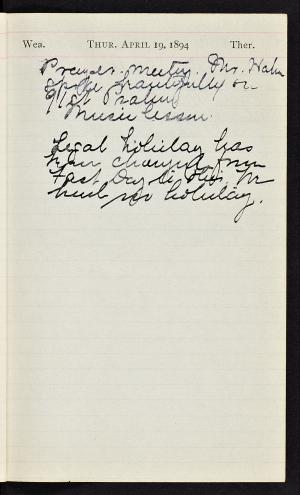 Wea. THUR. APRIL 19, 1894 Ther.
Prayer-meeting. Mr. Hahn
spoke beautifully on
91st Psalm
Music lesson.
Legal holiday has
been changed from
Fast Day to this. We
had no holiday.